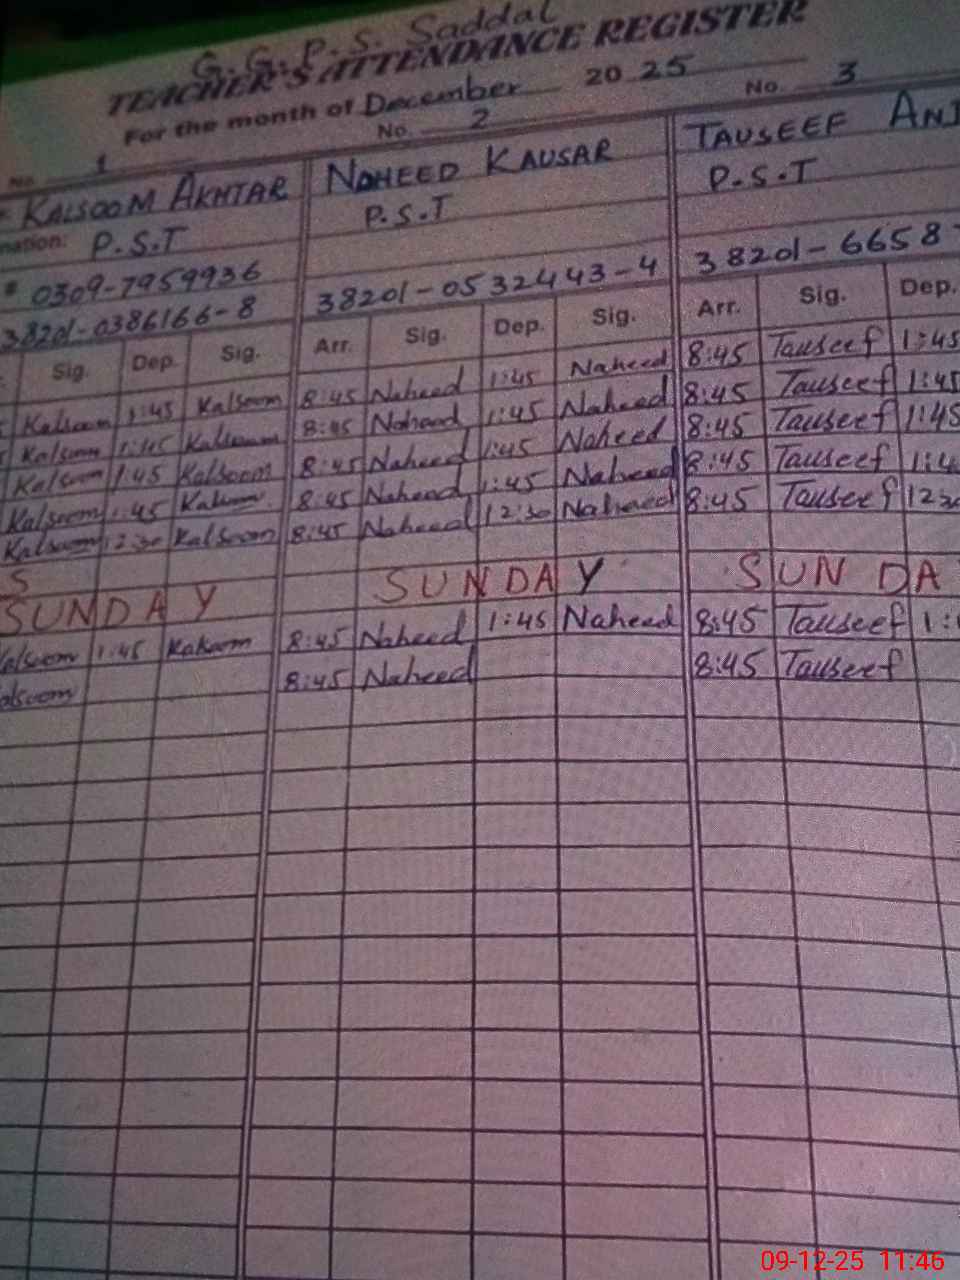 G.G.P.S. Saddal
TEACHER'S ATTENDANCE REGISTER
For the month of December 2025
No. 1 No. 2 No. 3
KALSOOM AKHTAR NAHEED KAUSAR TAUSEEF
nation: P.S.T P.S.T P.S.T
0309-7959936
38201-0386166-8 38201-0532443-4 38201-6658
Sig. Dep. Sig. Arr. Sig. Dep. Sig. Arr. Sig. Dep.
Kalsoom 1:45 Kalsoom 8:45 Naheed 1:45 Naheed 8:45 Tauseef 1:45
Kalsoom 1:45 Kalsoom 8:45 Naheed 1:45 Naheed 8:45 Tauseef 1:45
Kalsoom 1:45 Kalsoom 8:45 Naheed 1:45 Naheed 8:45 Tauseef 1:45
Kalsoom 1:45 Kalsoom 8:45 Naheed 1:45 Naheed 8:45 Tauseef 1:4
Kalsoom 12:30 Kalsoom 8:45 Naheed 12:30 Naheed 8:45 Tauseef 1230
S
SUNDAY SUNDAY SUNDA
alsoom 1:45 Kalsoom 8:45 Naheed 1:45 Naheed 8:45 Tauseef 1:
alsoom 8:45 Naheed 8:45 Tauseef
09-12-25 11:46